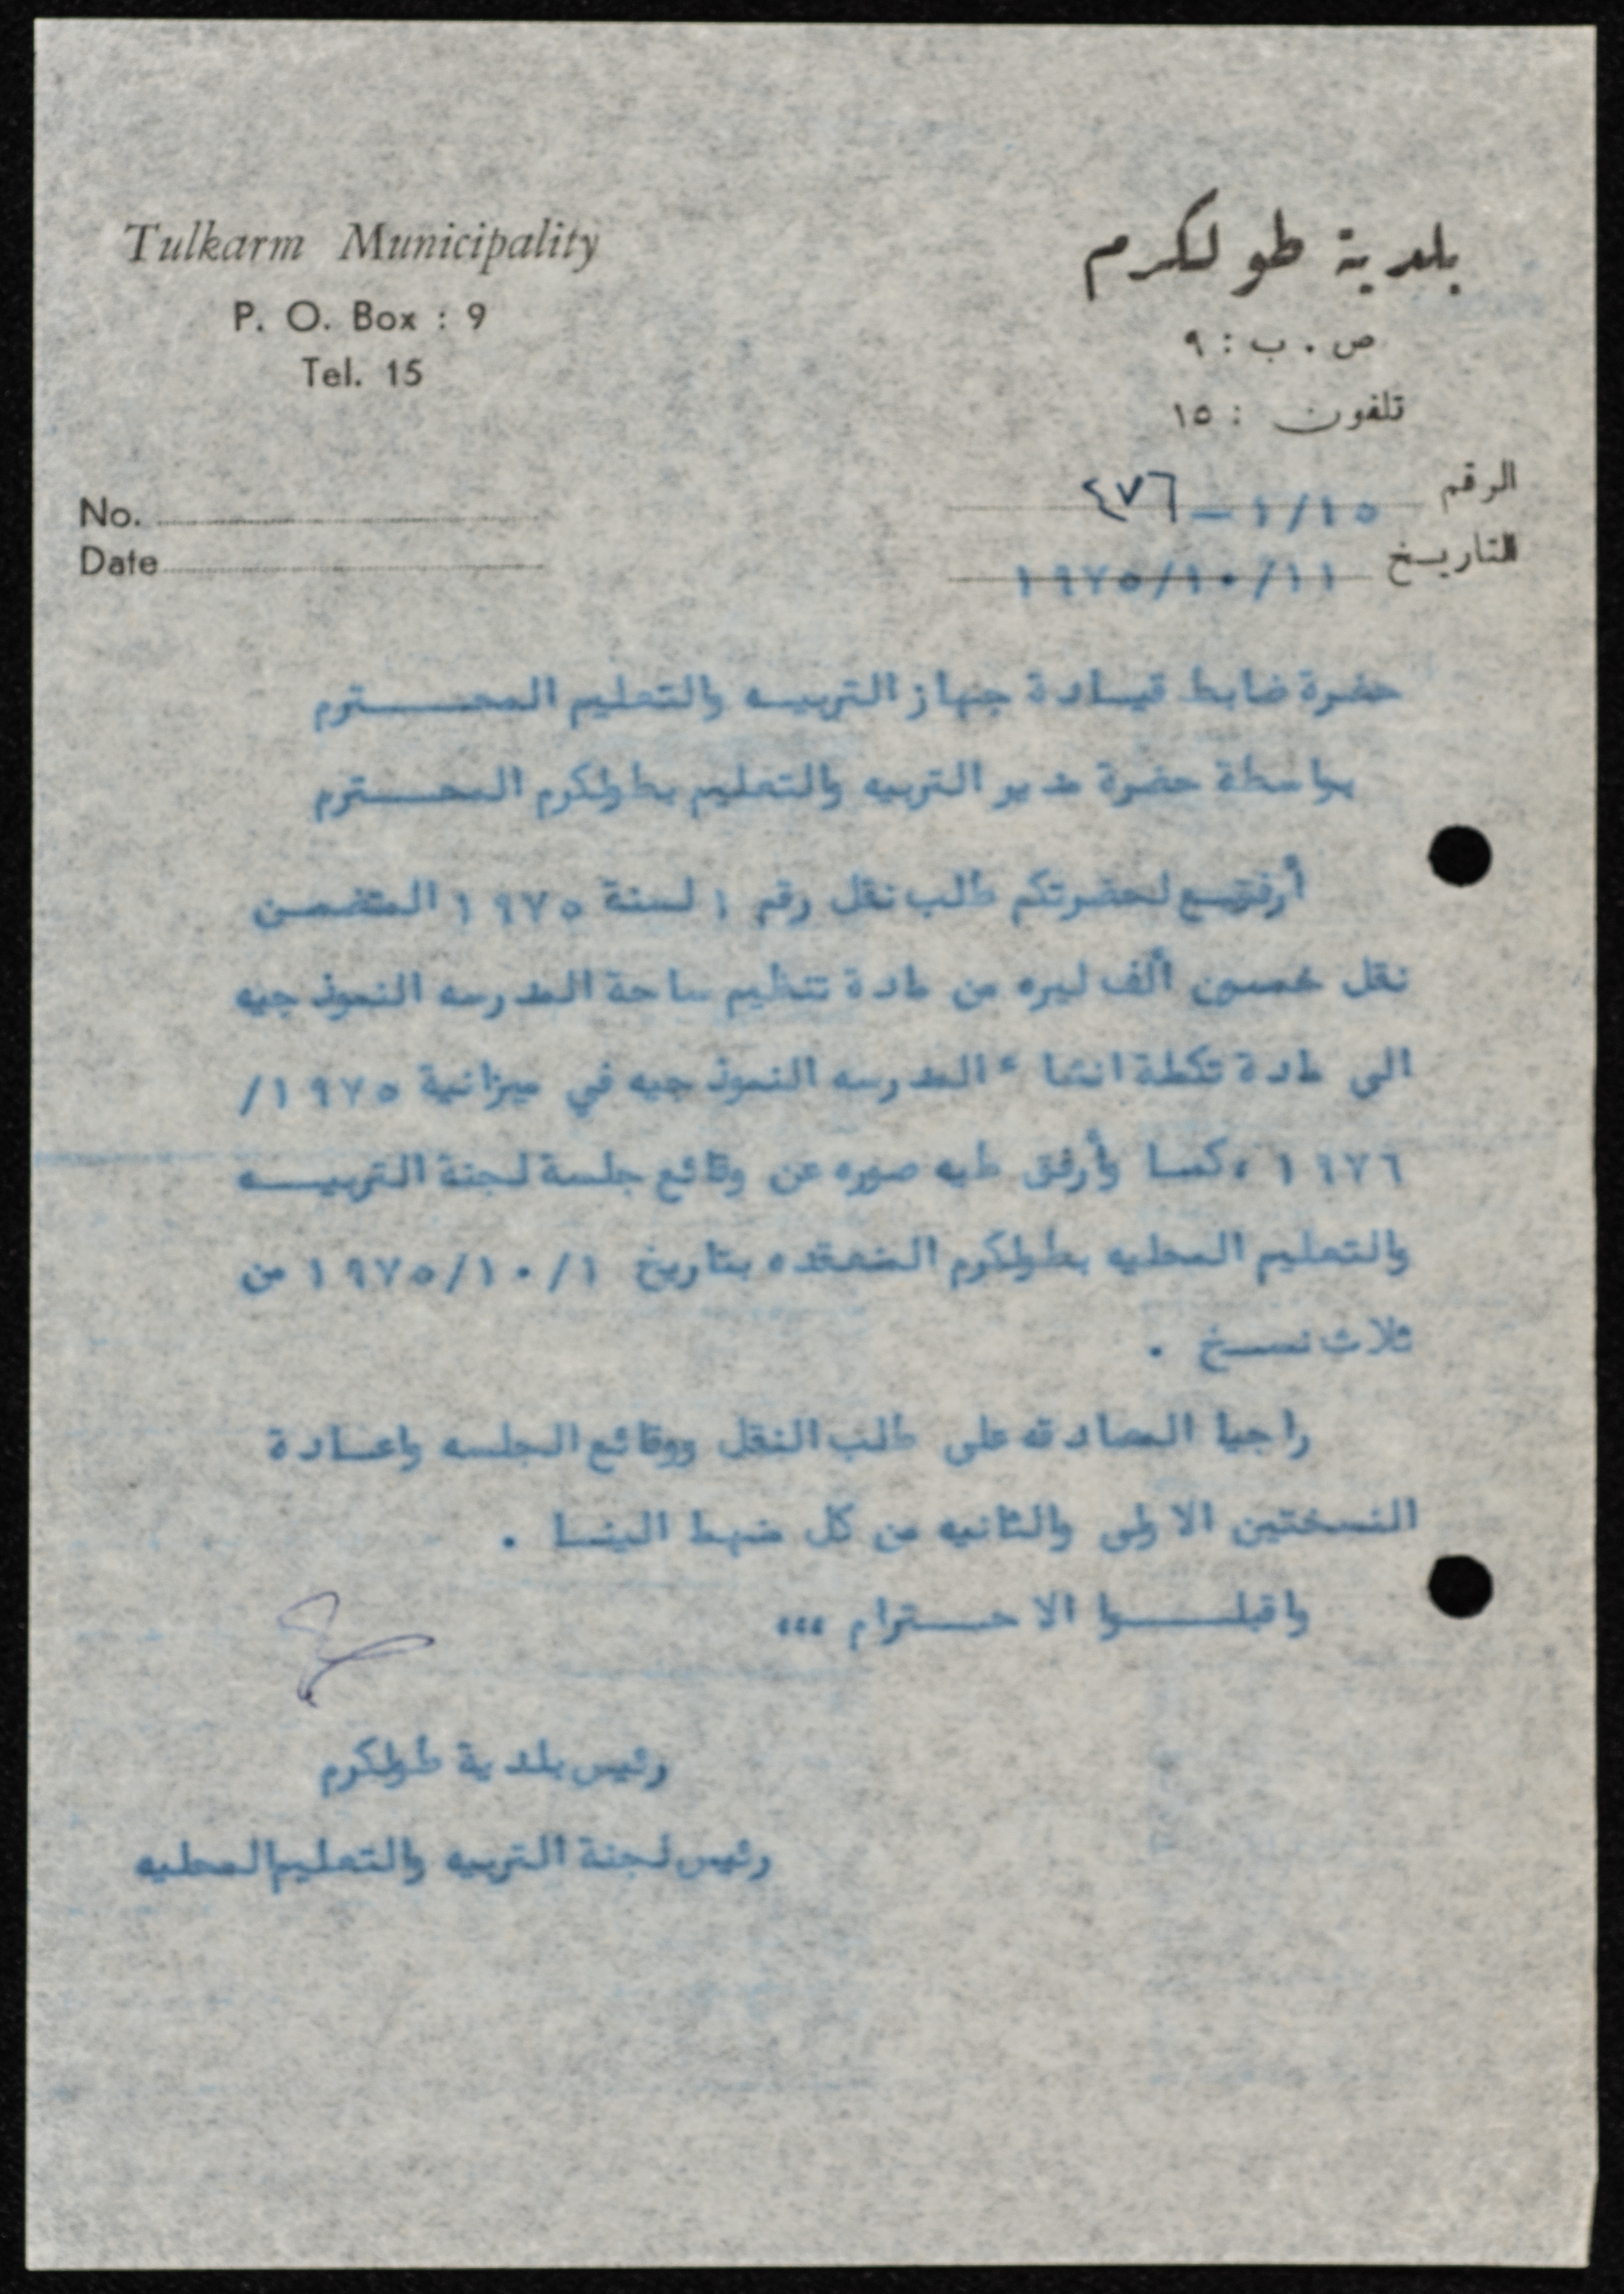 Tulkarm Municipality
P. O. Box : 9
Tel. 15
No.
Date
بلدية طولكرم
ص . ب : ٩
تلفون : ١٥
الرقم ١/١٥ – ٤٧٦
التاريخ ١٩٧٥/١٠/١١
حضرة ضابط قيادة جهاز التربيه والتعليم المحترم
بواسطة حضرة مدير التربيه والتعليم بطولكرم المحترم
لحضرتكم طلب نقل رقم ١ لسنة ١٩٧٥ المتضمن
نقل خمسين ألف ليره من مادة تنظيم ساحة المدرسه النموذجيه
الى مادة تكملة انشاء المدرسه النموذجيه في ميزانية ١٩٧٥/
١٩٧٦ ، كما وأرفق طيه صوره عن وقائع جلسة لجنة التربيه
والتعليم المحليه بطولكرم المنعقده بتاريخ ١٩٧٥/١٠/١ من
ثلاث نسخ .
راجيا المصادقه على طلب النقل ووقائع الجلسه واعادة
النسختين الاولى والثانيه من كل ضبط الينا .
واقبلوا الاحترام ،،،
رئيس بلدية طولكرم
رئيس لجنة التربيه والتعليم المحليه